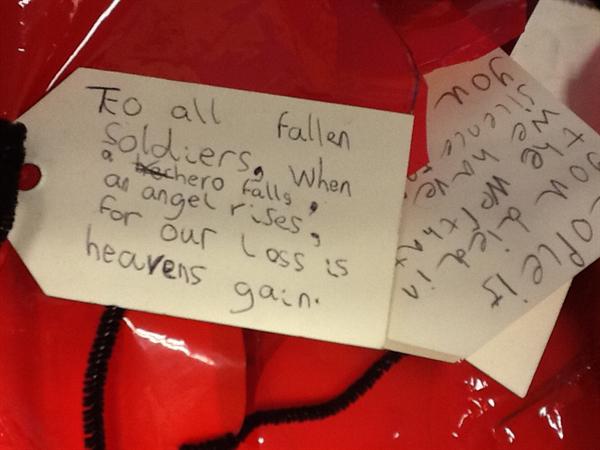 To all fallen
soldiers, When
a hero falls,
an angel rises,
for our loss is
heavens gain.
you died in
the
we have
silence
you